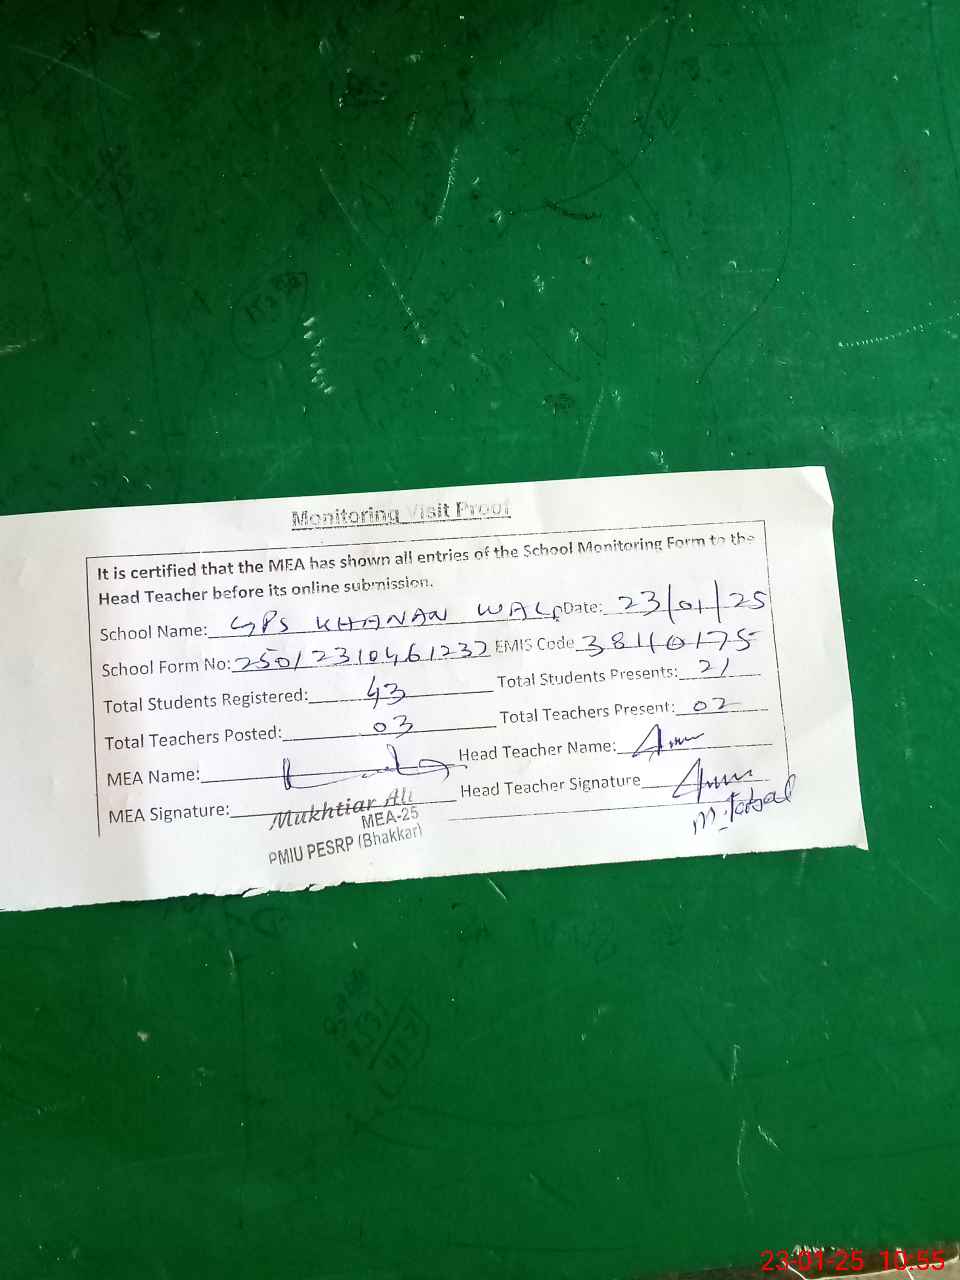 Monitoring Visit Proof
It is certified that the MEA has shown all entries of the School Monitoring Form to the
Head Teacher before its online submission.
School Name: GPS KHANAN WALA Date: 23/01/25
School Form No: 25012310461232 EMIS Code 38110175
Total Students Registered: 43 Total Students Presents: 21
Total Teachers Posted: 03 Total Teachers Present: 02
MEA Name: Head Teacher Name:
MEA Signature: Head Teacher Signature
Mukhtiar Ali
MEA-25
PMIU PESRP (Bhakkar)
23-01-25 10:55